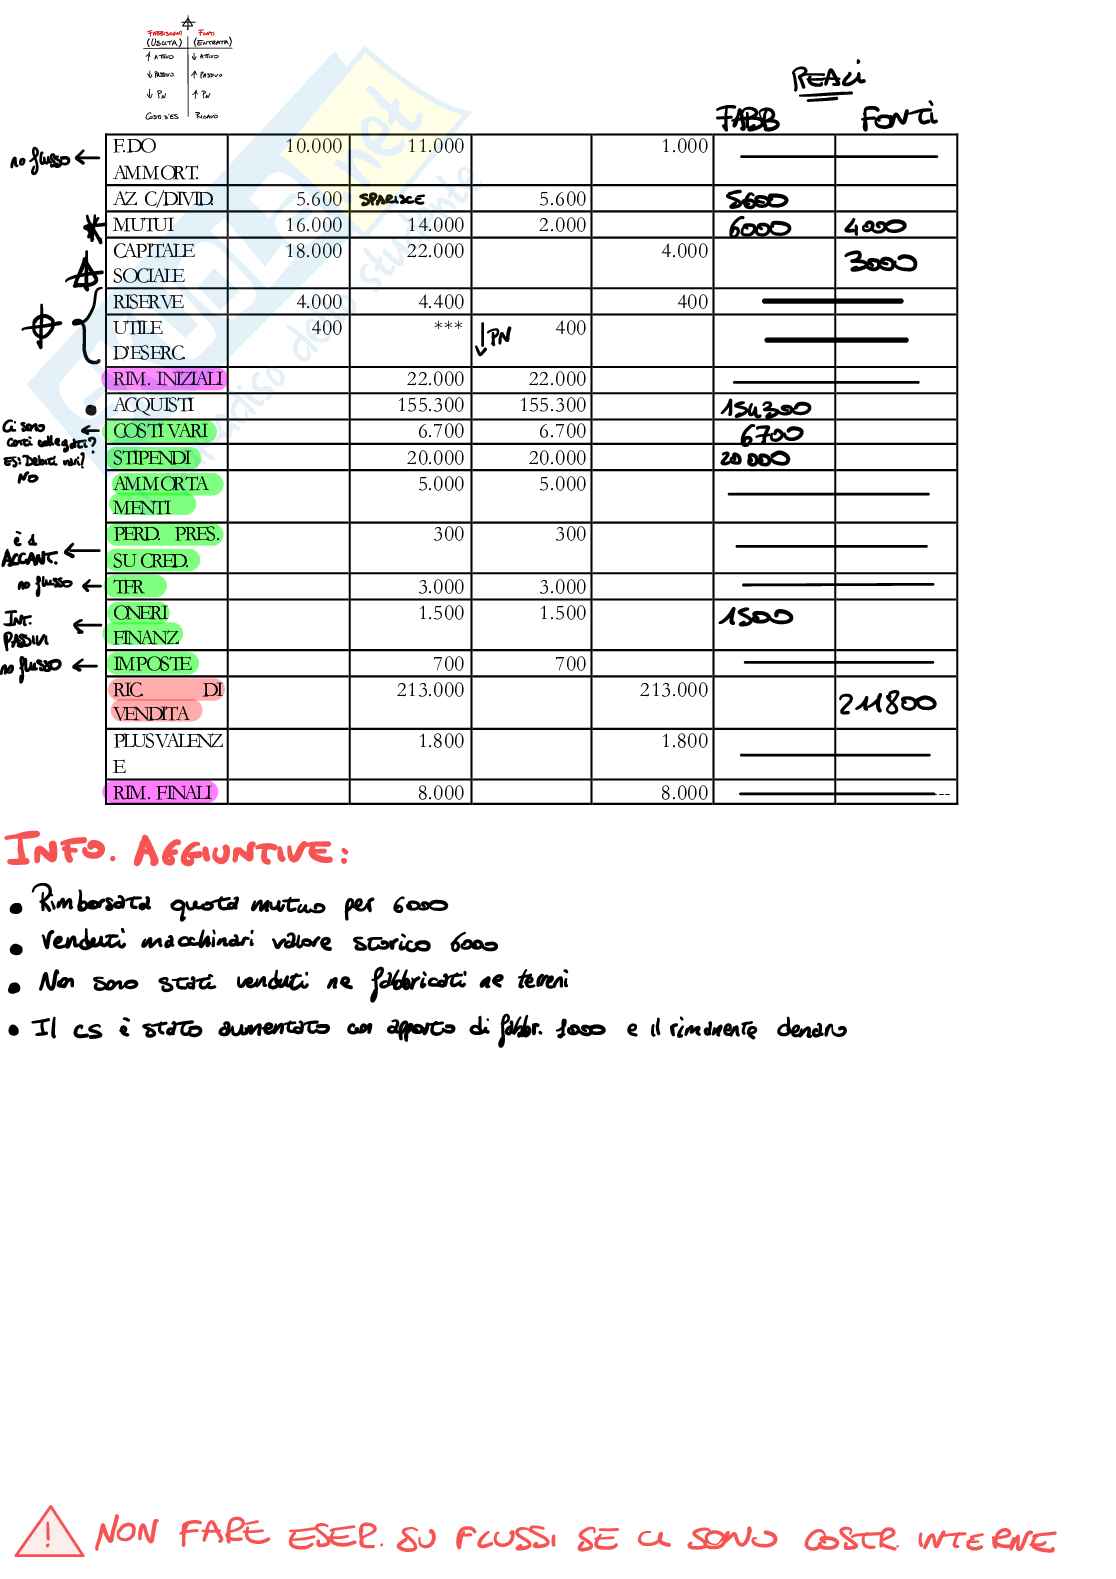 FABBISOGNI FONTI
(USCITA) (ENTRATA)
↑ ATTIVO ↓ ATTIVO
↓ PASSIVO ↑ PASSIVO
↓ PN ↑ PN
COSTI D'ES RICAVO
REALI
FABB FONTI
no flusso ← F.DO AMMORT. 10.000 11.000 1.000
AZ. C/DIVID. 5.600 SPARISCE 5.600 5600
MUTUI 16.000 14.000 2.000 6000 4000
CAPITALE SOCIALE 18.000 22.000 4.000 3000
RISERVE 4.000 4.400 400
UTILE D'ESERC. 400 *** ↓ PN 400
RIM. INIZIALI 22.000 22.000
ACQUISTI 155.300 155.300 154300
Ci sono conti collegati? ES: Debiti vari? NO ← COSTI VARI 6.700 6.700 6700
STIPENDI 20.000 20.000 20000
AMMORTAMENTI 5.000 5.000
è d ACCANT. ← PERD. PRES. SU CRED. 300 300
no flusso ← TFR 3.000 3.000
INT. PASSIVI ← ONERI FINANZ 1.500 1.500 1500
no flusso ← IMPOSTE 700 700
RIC. DI VENDITA 213.000 213.000 211800
PLUSVALENZE 1.800 1.800
RIM. FINALI 8.000 8.000 ---
INFO. AGGIUNTIVE:
• Rimborsata quota mutuo per 6000
• Venduti macchinari valore storico 6000
• Non sono stati venduti ne fabbricati ne terreni
• Il cs è stato aumentato con apporto di fabbr. 1000 e il rimanente denaro
! NON FARE ESER. SU FLUSSI SE CI SONO COSTR. INTERNE